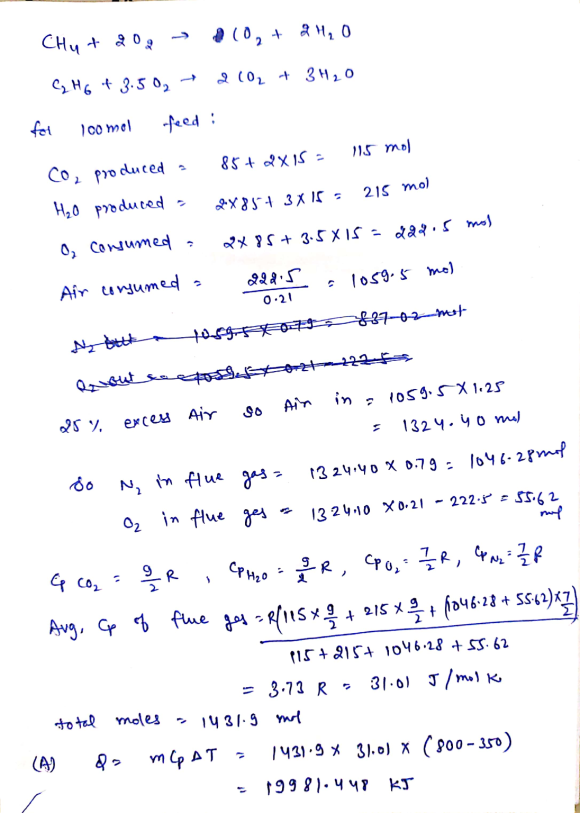 CH4 + 2O2 → CO2 + 2H2O
C2H6 + 3.5O2 → 2CO2 + 3H2O
for 100 mol feed :
CO2 produced = 85 + 2×15 = 115 mol
H2O produced = 2×85 + 3×15 = 215 mol
O2 consumed = 2×85 + 3.5×15 = 222.5 mol
Air consumed = 222.5 / 0.21 = 1059.5 mol
N2 out = 1059.5 × 0.79 = 837.02 mol
O2 out = 1059.5 × 0.21 - 222.5 =
25 % excess Air so Air in = 1059.5 × 1.25
= 1324.40 mol
so N2 in flue gas = 1324.40 × 0.79 = 1046.28 mol
O2 in flue gas = 1324.10 × 0.21 - 222.5 = 55.62 mol
Cp CO2 = 9/2 R , CpH2O = 9/2 R , CpO2 = 7/2 R , CpN2 = 7/2 R
Avg. Cp of flue gas = R{115 × 9/2 + 215 × 9/2 + (1046.28 + 55.62) × 7/2}
115 + 215 + 1046.28 + 55.62
= 3.73 R = 31.01 J/mol K
total moles = 1431.9 mol
(A) Q = mCpΔT = 1431.9 × 31.01 × (800-350)
= 19981.448 KJ